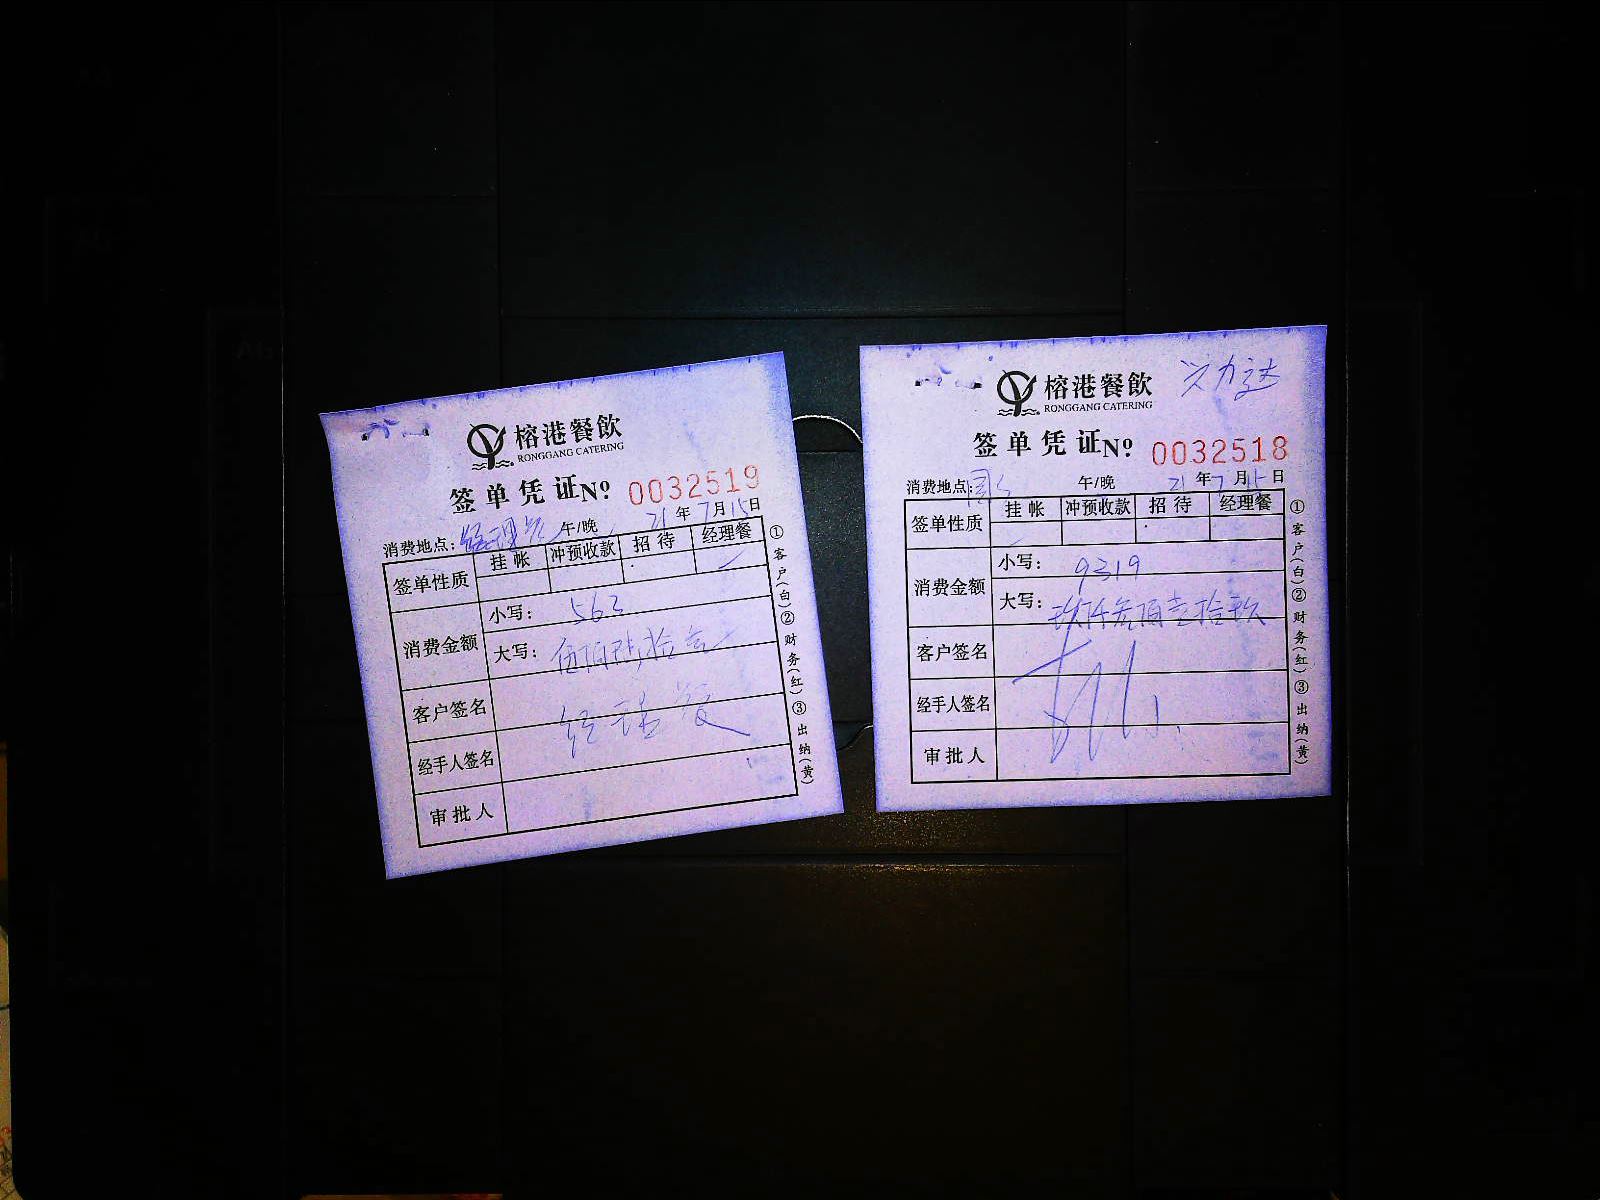 榕港餐飲
RONGGANG CATERING
签单凭证№ 0032519
消费地点: 经理餐 午/晚 21年7月15日
签单性质 挂帐 冲预收款 招待 经理餐
消费金额 小写: 563
大写: 伍佰陆拾叁
客户签名
经手人签名
审批人
①客户(白)②财务(红)③出纳(黄)
榕港餐飲
RONGGANG CATERING
签单凭证№ 0032518
消费地点: 午/晚 21年7月15日
签单性质 挂帐 冲预收款 招待 经理餐
消费金额 小写: 9319
大写: 玖仟叁佰壹拾玖
客户签名
经手人签名
审批人
①客户(白)②财务(红)③出纳(黄)